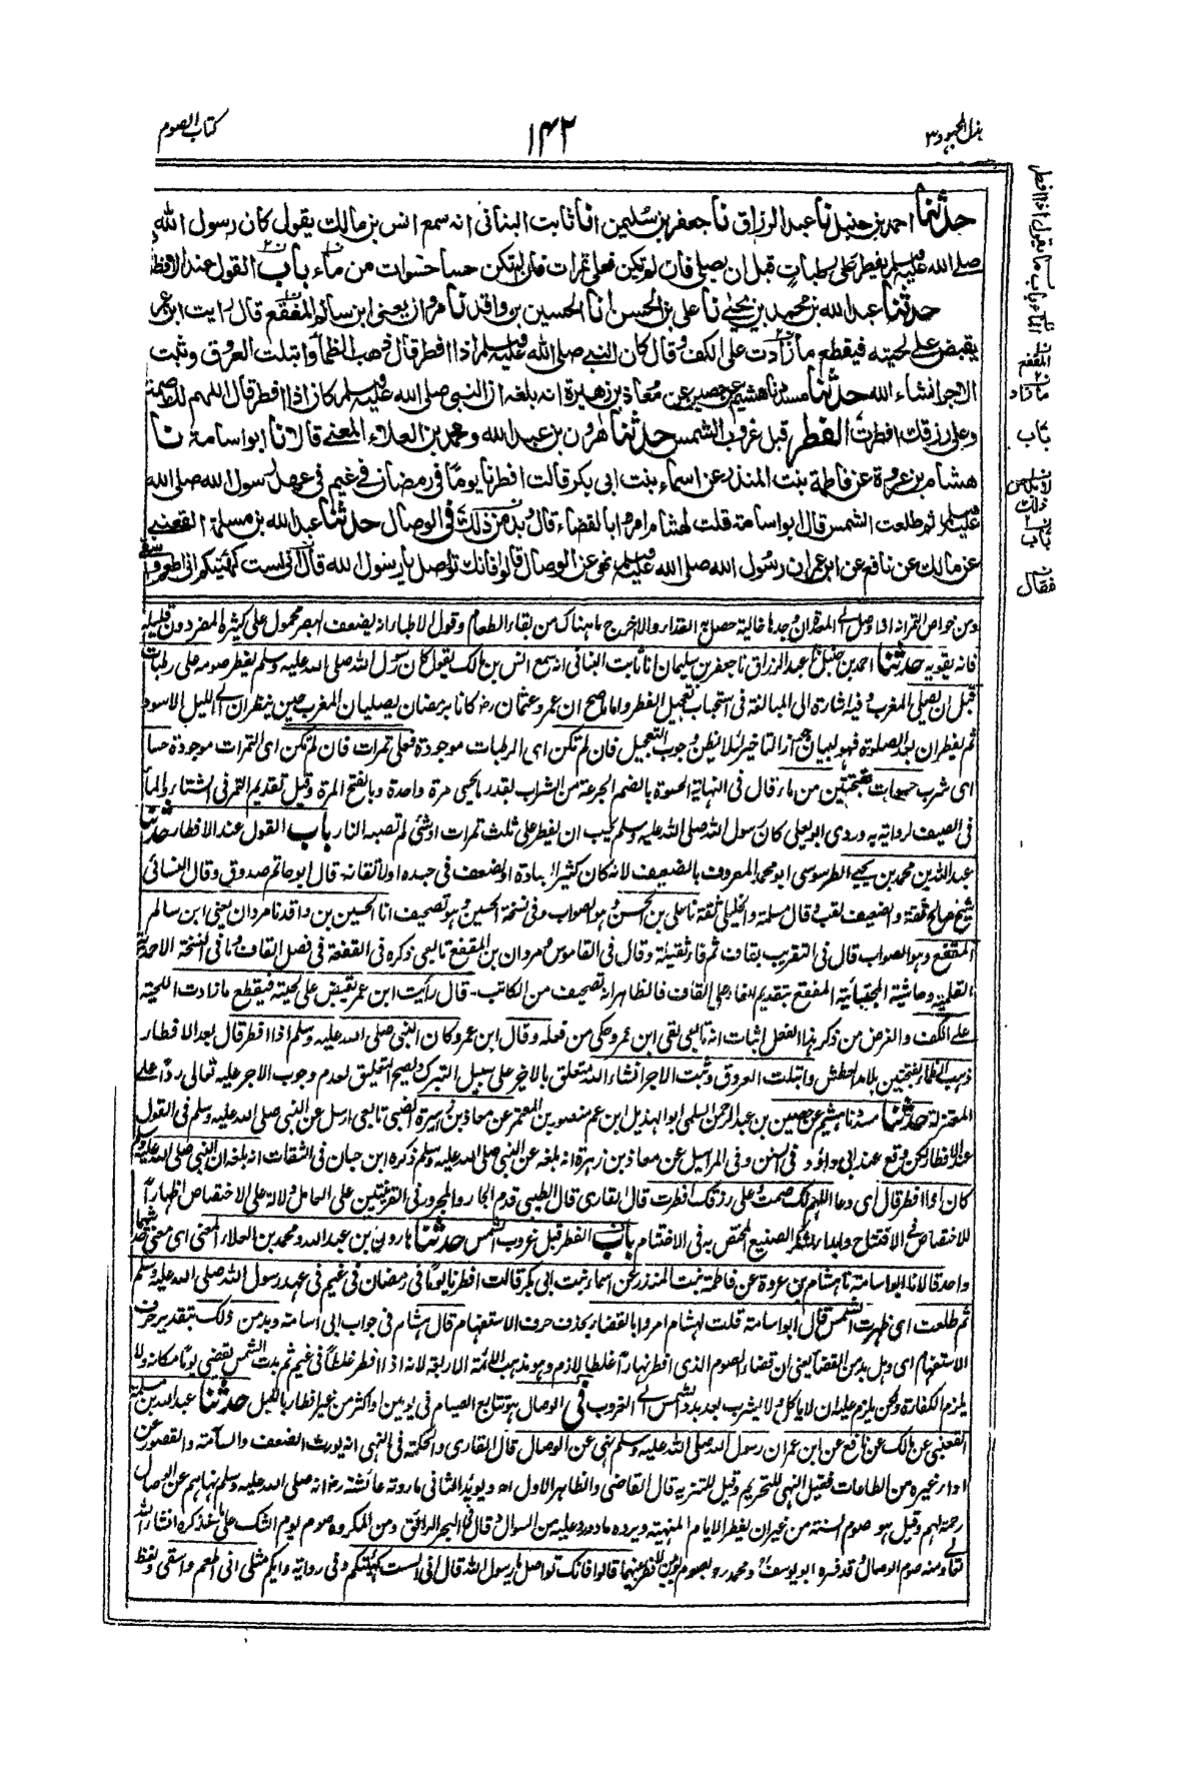 بذل المجهود ٣
١٤٢
كتاب الصوم
حدثنا احمد بن حنبل نا عبد الرزاق نا جعفر بن سليمن انا ثابت البناني انه سمع انس بن مالك يقول كان رسول الله
صلى الله عليه وسلم يفطر على رطبات قبل ان يصلي فان لم تكن فعلى تمرات فان لم تكن حسا حسوات من ماء باب القول عند الافطار
حدثنا عبد الله بن محمد بن يحيى نا علي بن الحسن انا الحسين بن واقد نا مروان يعني ابن سالم المقفع قال رايت ابن عمر
يقبض على لحيته فيقطع ما زادت على الكف وقال كان النبي صلى الله عليه وسلم اذا افطر قال ذهب الظمأ وابتلت العروق وثبت
الاجر انشاء الله حدثنا مسدد نا هشيم عن حصين عن معاذ بن زهرة انه بلغه ان النبي صلى الله عليه وسلم كان اذا افطر قال اللهم لك صمت
وعلى رزقك افطرت الفطر قبل غروب الشمس حدثنا هرون بن عبد الله ومحمد بن العلاء المعنى قالا نا ابو اسامة نا
هشام بن عروة عن فاطمة بنت المنذر عن اسماء بنت ابي بكر قالت افطرنا يوما في رمضان في غيم في عهد رسول الله صلى الله
عليه وسلم ثم طلعت الشمس قال ابو اسامة قلت لهشام امروا بالقضاء قال وبد من ذلك في الوصال حدثنا عبد الله بن مسلمة القعنبي
عن مالك عن نافع عن ابن عمر ان رسول الله صلى الله عليه وسلم نهى عن الوصال قالوا فانك تواصل يا رسول الله قال اني لست كهيئتكم اني اطعم واسقى
باب ما يقول اذا افطر
المقفع
ما زاد
باب
فقال
ومن خواص التمر انه اذا وصل الى المعدة ان وجدها خالية حصل به الغذاء والا اخرج ما هناك من بقايا الطعام وقول الاطباء انه يضعف البصر محمول على كثيره المضر دون قليله
فانه يقويه حدثنا احمد بن حنبل نا عبد الرزاق نا جعفر بن سليمان انا ثابت البناني انه سمع انس بن مالك يقول كان رسول الله صلى الله عليه وسلم يفطر صومه على رطبات
قبل ان يصلي المغرب وفيه اشارة الى المبالغة في استحباب تعجيل الفطر واما ما صح ان عمر وعثمان رضـ كانا برمضان يصليان المغرب حين ينظران الى الليل الاسود
ثم يفطران بعد الصلوة فهو لبيان جواز التاخير لئلا يظن وجوب التعجيل فان لم تكن اى الرطبات موجودة فعلى تمرات فان لم تكن اى التمرات موجودة حسا
اى شرب حسوات بفتحتين من ماء قال في النهاية الحسوة بالضم الجرعة من الشراب بقدر ما يحسى مرة واحدة وبالفتح المرة وقيل تقديم التمر في الشتاء والماء
في الصيف لرواية به وروى ابو يعلى كان رسول الله صلى الله عليه وسلم يحب ان يفطر على ثلث تمرات او شئ لم تصبه النار باب القول عند الافطار حدثنا
عبد الله بن محمد بن يحيى الطرسوسي ابو محمد المعروف بالضعيف لانه كان كثير العبادة او لضعف في جسده او لاتقانه قال ابو حاتم صدوق وقال النسائي
شيخ صالح ثقة والضعيف لقب وقال مسلمة والخليلي ثقة نا علي بن الحسن وهو الصواب وفي نسخة الحسين وهو تصحيف انا الحسين بن واقد نا مروان يعني ابن سالم
المقفع وهو الصواب قال في التقريب بقاف ثم فاء ثقيلة وقال في القاموس مروان بن المقفع تابعي ذكره في القفعة في فصل القاف وما في النسخة الاحمدية
القلمية وحاشية المجتبائية المفقع بتقديم الفاء على القاف فالظاهر انه تصحيف من الكاتب - قال رأيت ابن عمر يقبض على لحيته فيقطع ما زادت اللحية
على الكف والغرض من ذكر هذا الفعل اثبات انه تابعي لقي ابن عمر وحكى من فعله وقال ابن عمر وكان النبي صلى الله عليه وسلم اذا افطر قال بعد الافطار
ذهب الظمأ بفتحتين بلا مد العطش وابتلت العروق وثبت الاجر انشاء الله متعلق بالاخير على سبيل التبرك ويصح التعليق لعدم وجوب الاجر عليه تعالى ردا على
المعتزلة حدثنا مسدد نا هشيم عن حصين بن عبد الرحمن السلمي ابو الهذيل ابن عم منصور بن المعتمر عن معاذ بن زهرة الضبي تابعي ارسل عن النبي صلى الله عليه وسلم في القول
عند الافطار لكن وقع عند ابي داؤد في السنن وفي المراسيل عن معاذ بن زهرة انه بلغه عن النبي صلى الله عليه وسلم ذكره ابن حبان في الثقات انه بلغه ان النبي صلى الله عليه وسلم
كان اذا افطر قال اى دعا اللهم لك صمت وعلى رزقك افطرت قال القاري قال الطيبي قدم الجار والمجرور في القرينتين على العامل دلالة على الاختصاص اظهارا
للاختصاص في الافتتاح وابداء لشكر الصنيع المختص به في الاختتام باب الفطر قبل غروب الشمس حدثنا هارون بن عبد الله ومحمد بن العلاء المعنى اى معنى حديثهما
واحد قالا نا ابو اسامة نا هشام بن عروة عن فاطمة بنت المنذر عن اسماء بنت ابي بكر قالت افطرنا يوما في رمضان في غيم في عهد رسول الله صلى الله عليه وسلم
ثم طلعت اى ظهرت الشمس قال ابو اسامة قلت لهشام امروا بالقضاء بحذف حرف الاستفهام قال هشام في جواب ابي اسامة وبد من ذلك بتقدير حرف
الاستفهام اى وهل بد من القضاء يعني ان قضاء الصوم الذى افطر نهارا غلطا لازم وهو مذهب الائمة الاربعة لانه اذا افطر غلطا في غيم ثم بدت الشمس يقضي يوما مكانه ولا
يلزم الكفارة ولكن يلزم عليه ان لا ياكل ولا يشرب بعد بدو الشمس الى الغروب في الوصال هو تتابع الصيام في يومين او اكثر من غير افطار بالليل حدثنا عبد الله بن مسلمة
القعنبي عن مالك عن نافع عن ابن عمر ان رسول الله صلى الله عليه وسلم نهى عن الوصال قال القاري والحكمة في النهي انه يورث الضعف والسآمة والقصور عن
اداء غيره من الطاعات فقيل النهي للتحريم وقيل للتنزيه قال القاضي والظاهر الاول اهـ ويؤيد الثاني ما روته عائشة رضـ انه صلى الله عليه وسلم نهاهم عن الوصال
رحمة لهم وقيل هو صوم السنة من غير ان يفطر الايام المنهية ويرده ما ورد عليه من السوال وقال في البحر الرائق ومن المكروه صوم يوم الشك على ما نذكره انشاء الله
تعالى ومنه صوم الوصال وقد فسره ابو يوسف ومحمد رح بصوم يومين لا فطر بينهما قالوا فانك تواصل يا رسول الله قال اني لست كهيئتكم وفي رواية وايكم مثلي اني اطعم واسقى ولفظ